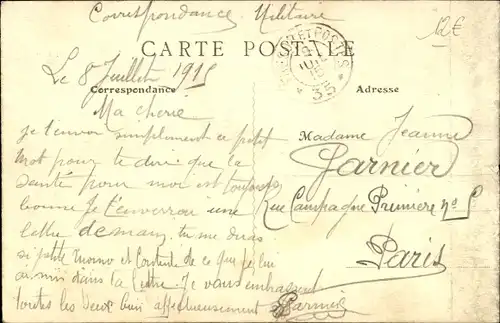 Correspondance Militaire
12€
CARTE POSTALE
TRESOR ET POSTES
* 35 *
Le 8 Juillet 1915
Correspondance
Adresse
Ma cherie
Je t'envoi simplement ce petit
mot pour te dire que la
santé pour moi est toujours
bonne Je t'enverrai une
lettre demain, tu me diras
si petite momo et contente de ce que je lui
ai mis dans la lettre. Je vous embrassent
toutes les deux bien affectueusement Garnier
Madame Jeanne
Garnier
Rue Campagne Première no
Paris